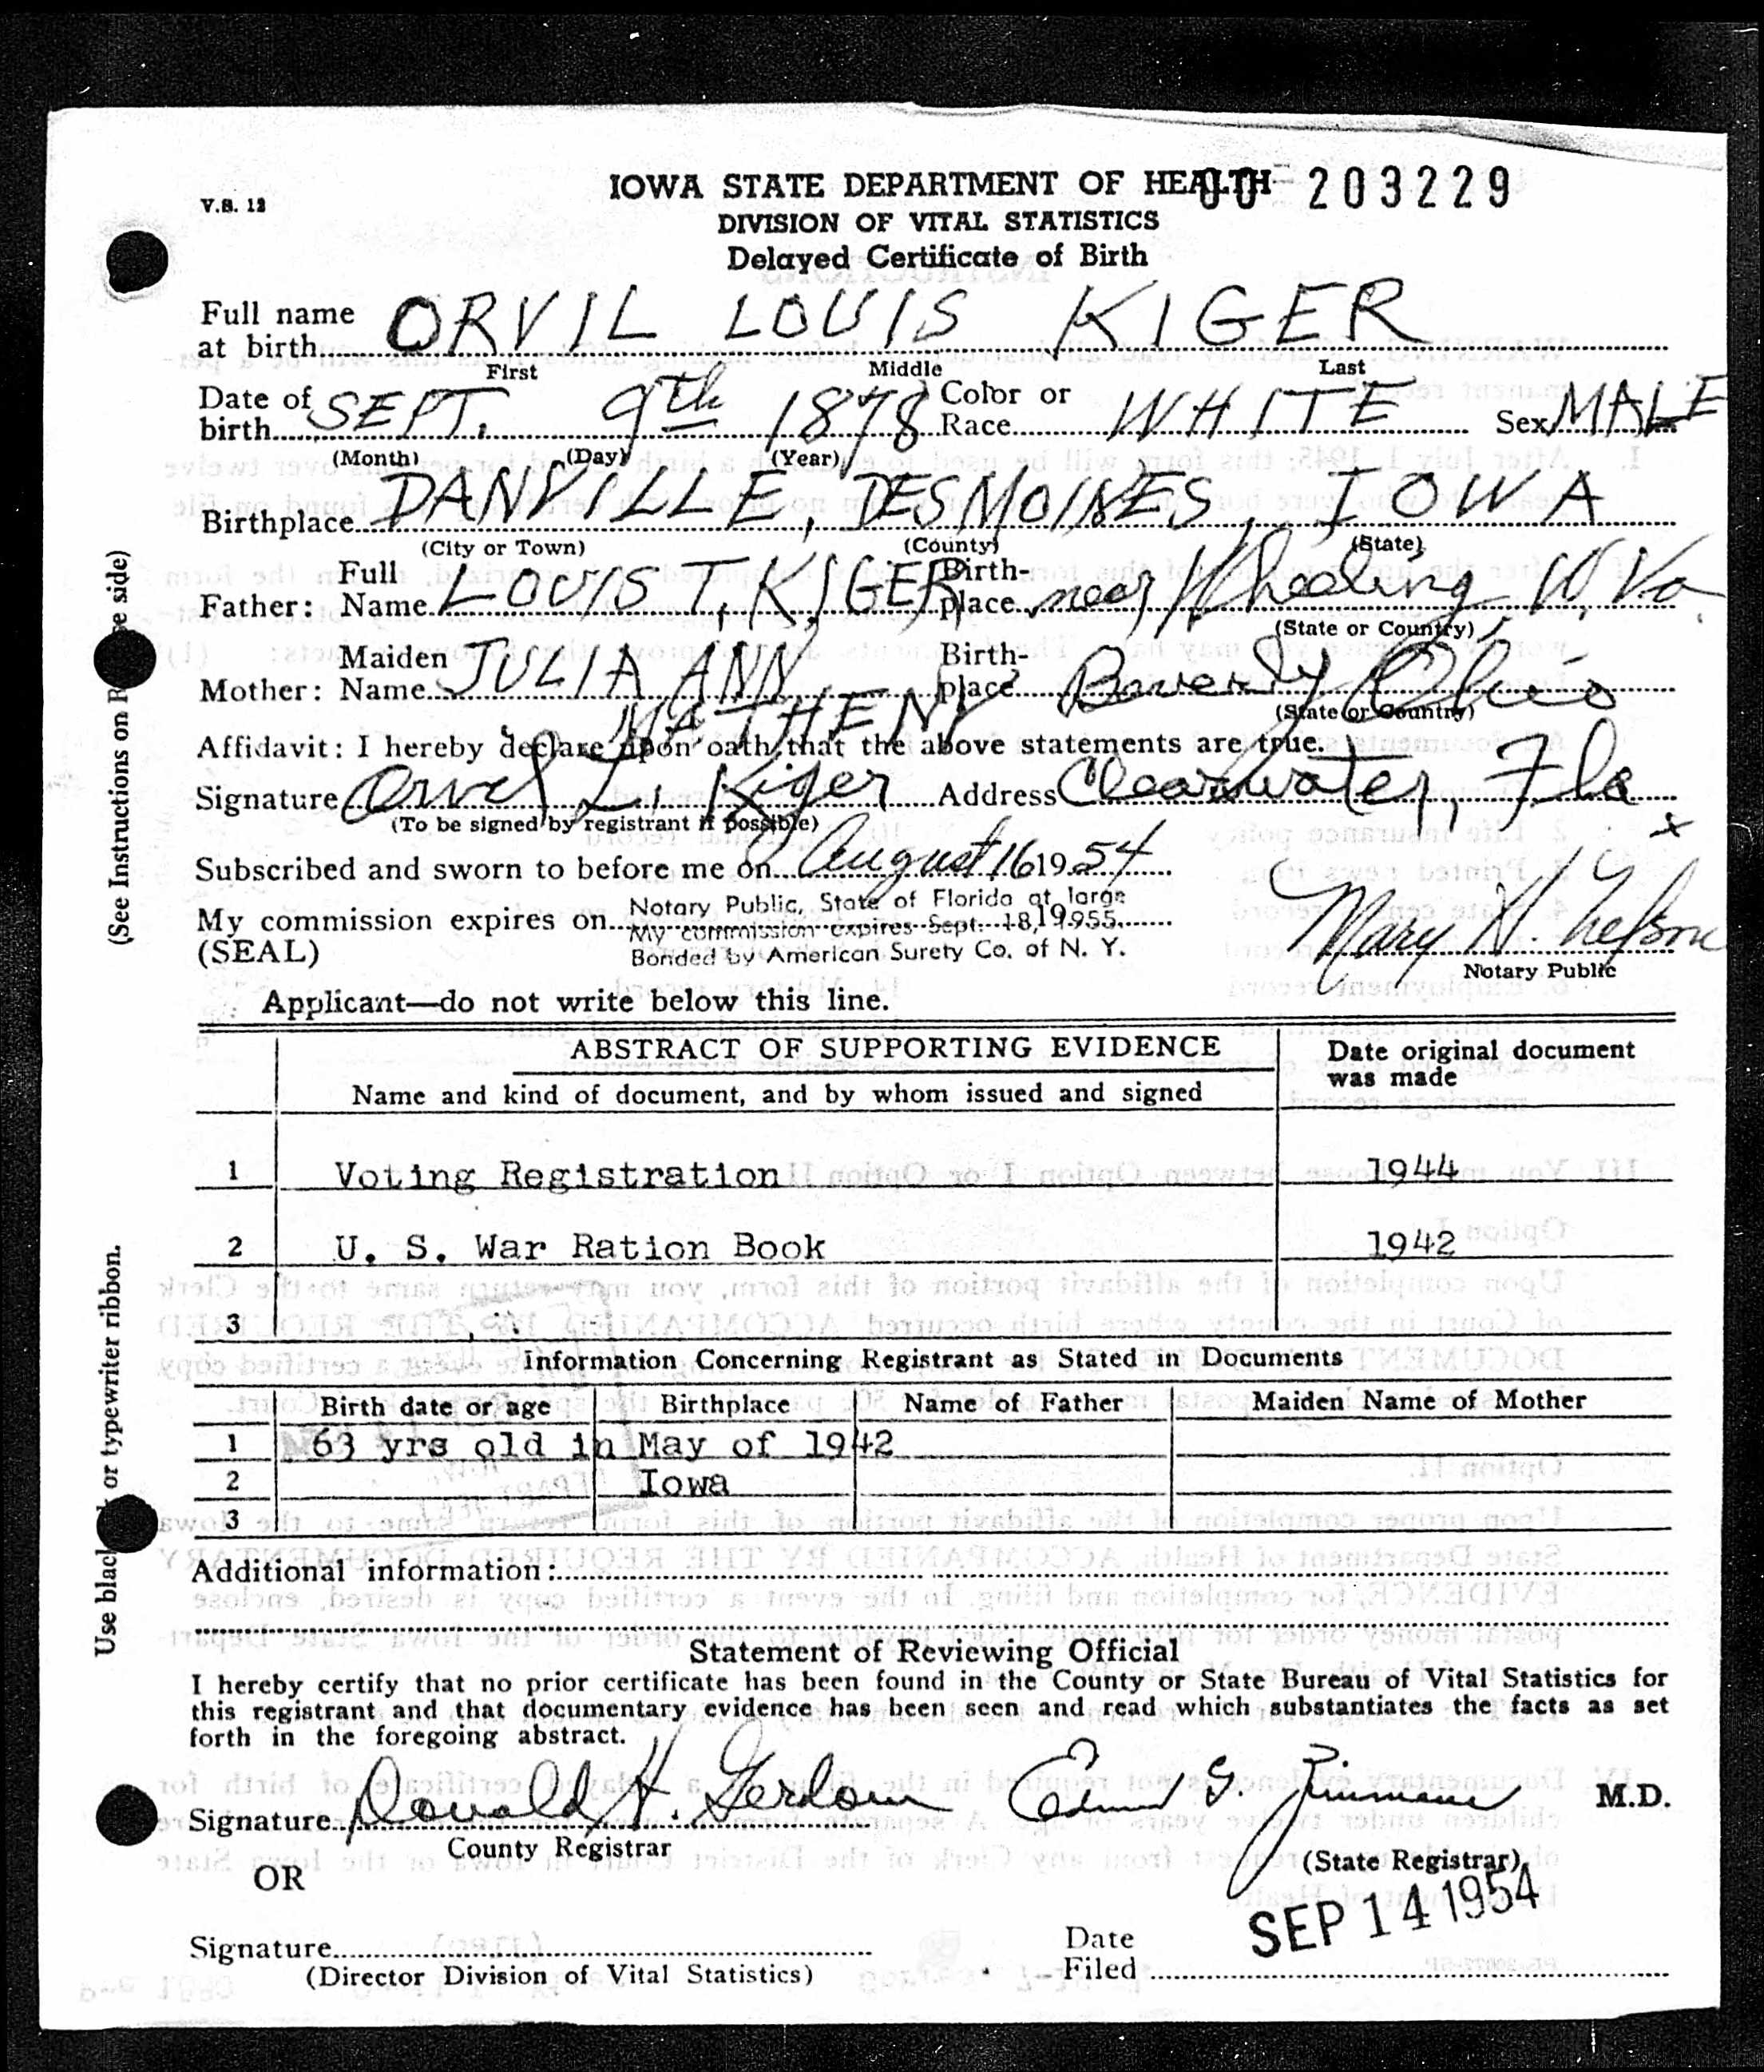 V.S. 12
IOWA STATE DEPARTMENT OF HEALTH 00 203229
DIVISION OF VITAL STATISTICS
Delayed Certificate of Birth
Full name at birth ORVIL LOUIS KIGER
First Middle Last
Date of birth SEPT. 9th 1878 Color or Race WHITE Sex MALE
(Month) (Day) (Year)
Birthplace DANVILLE, DESMOINES, IOWA
(City or Town) (County) (State)
Father: Full Name LOUIS T. KIGER Birthplace near Wheeling W. Va.
(State or Country)
Mother: Maiden Name JULIA ANN MATHENY Birthplace Beverly Ohio
(State or Country)
Affidavit: I hereby declare upon oath that the above statements are true.
Signature Orvil L. Kiger Address Clearwater, Fla
(To be signed by registrant if possible)
Subscribed and sworn to before me on August 16 1954
My commission expires on Notary Public, State of Florida at large
My commission expires Sept. 18, 1955
(SEAL) Bonded by American Surety Co. of N. Y.
Mary H. Nelson
Notary Public
Applicant—do not write below this line.
ABSTRACT OF SUPPORTING EVIDENCE Date original document was made
Name and kind of document, and by whom issued and signed
1 Voting Registration 1944
2 U. S. War Ration Book 1942
3
Information Concerning Registrant as Stated in Documents
Birth date or age Birthplace Name of Father Maiden Name of Mother
1 63 yrs old in May of 1942
2 Iowa
3
Additional information:
Statement of Reviewing Official
I hereby certify that no prior certificate has been found in the County or State Bureau of Vital Statistics for
this registrant and that documentary evidence has been seen and read which substantiates the facts as set
forth in the foregoing abstract.
Signature Donald H. Gerdom Edmund G. Zimmerer M.D.
County Registrar (State Registrar)
OR
SEP 14 1954
Signature Date Filed
(Director Division of Vital Statistics)
(See Instructions on Re se side)
Use blac or typewriter ribbon.